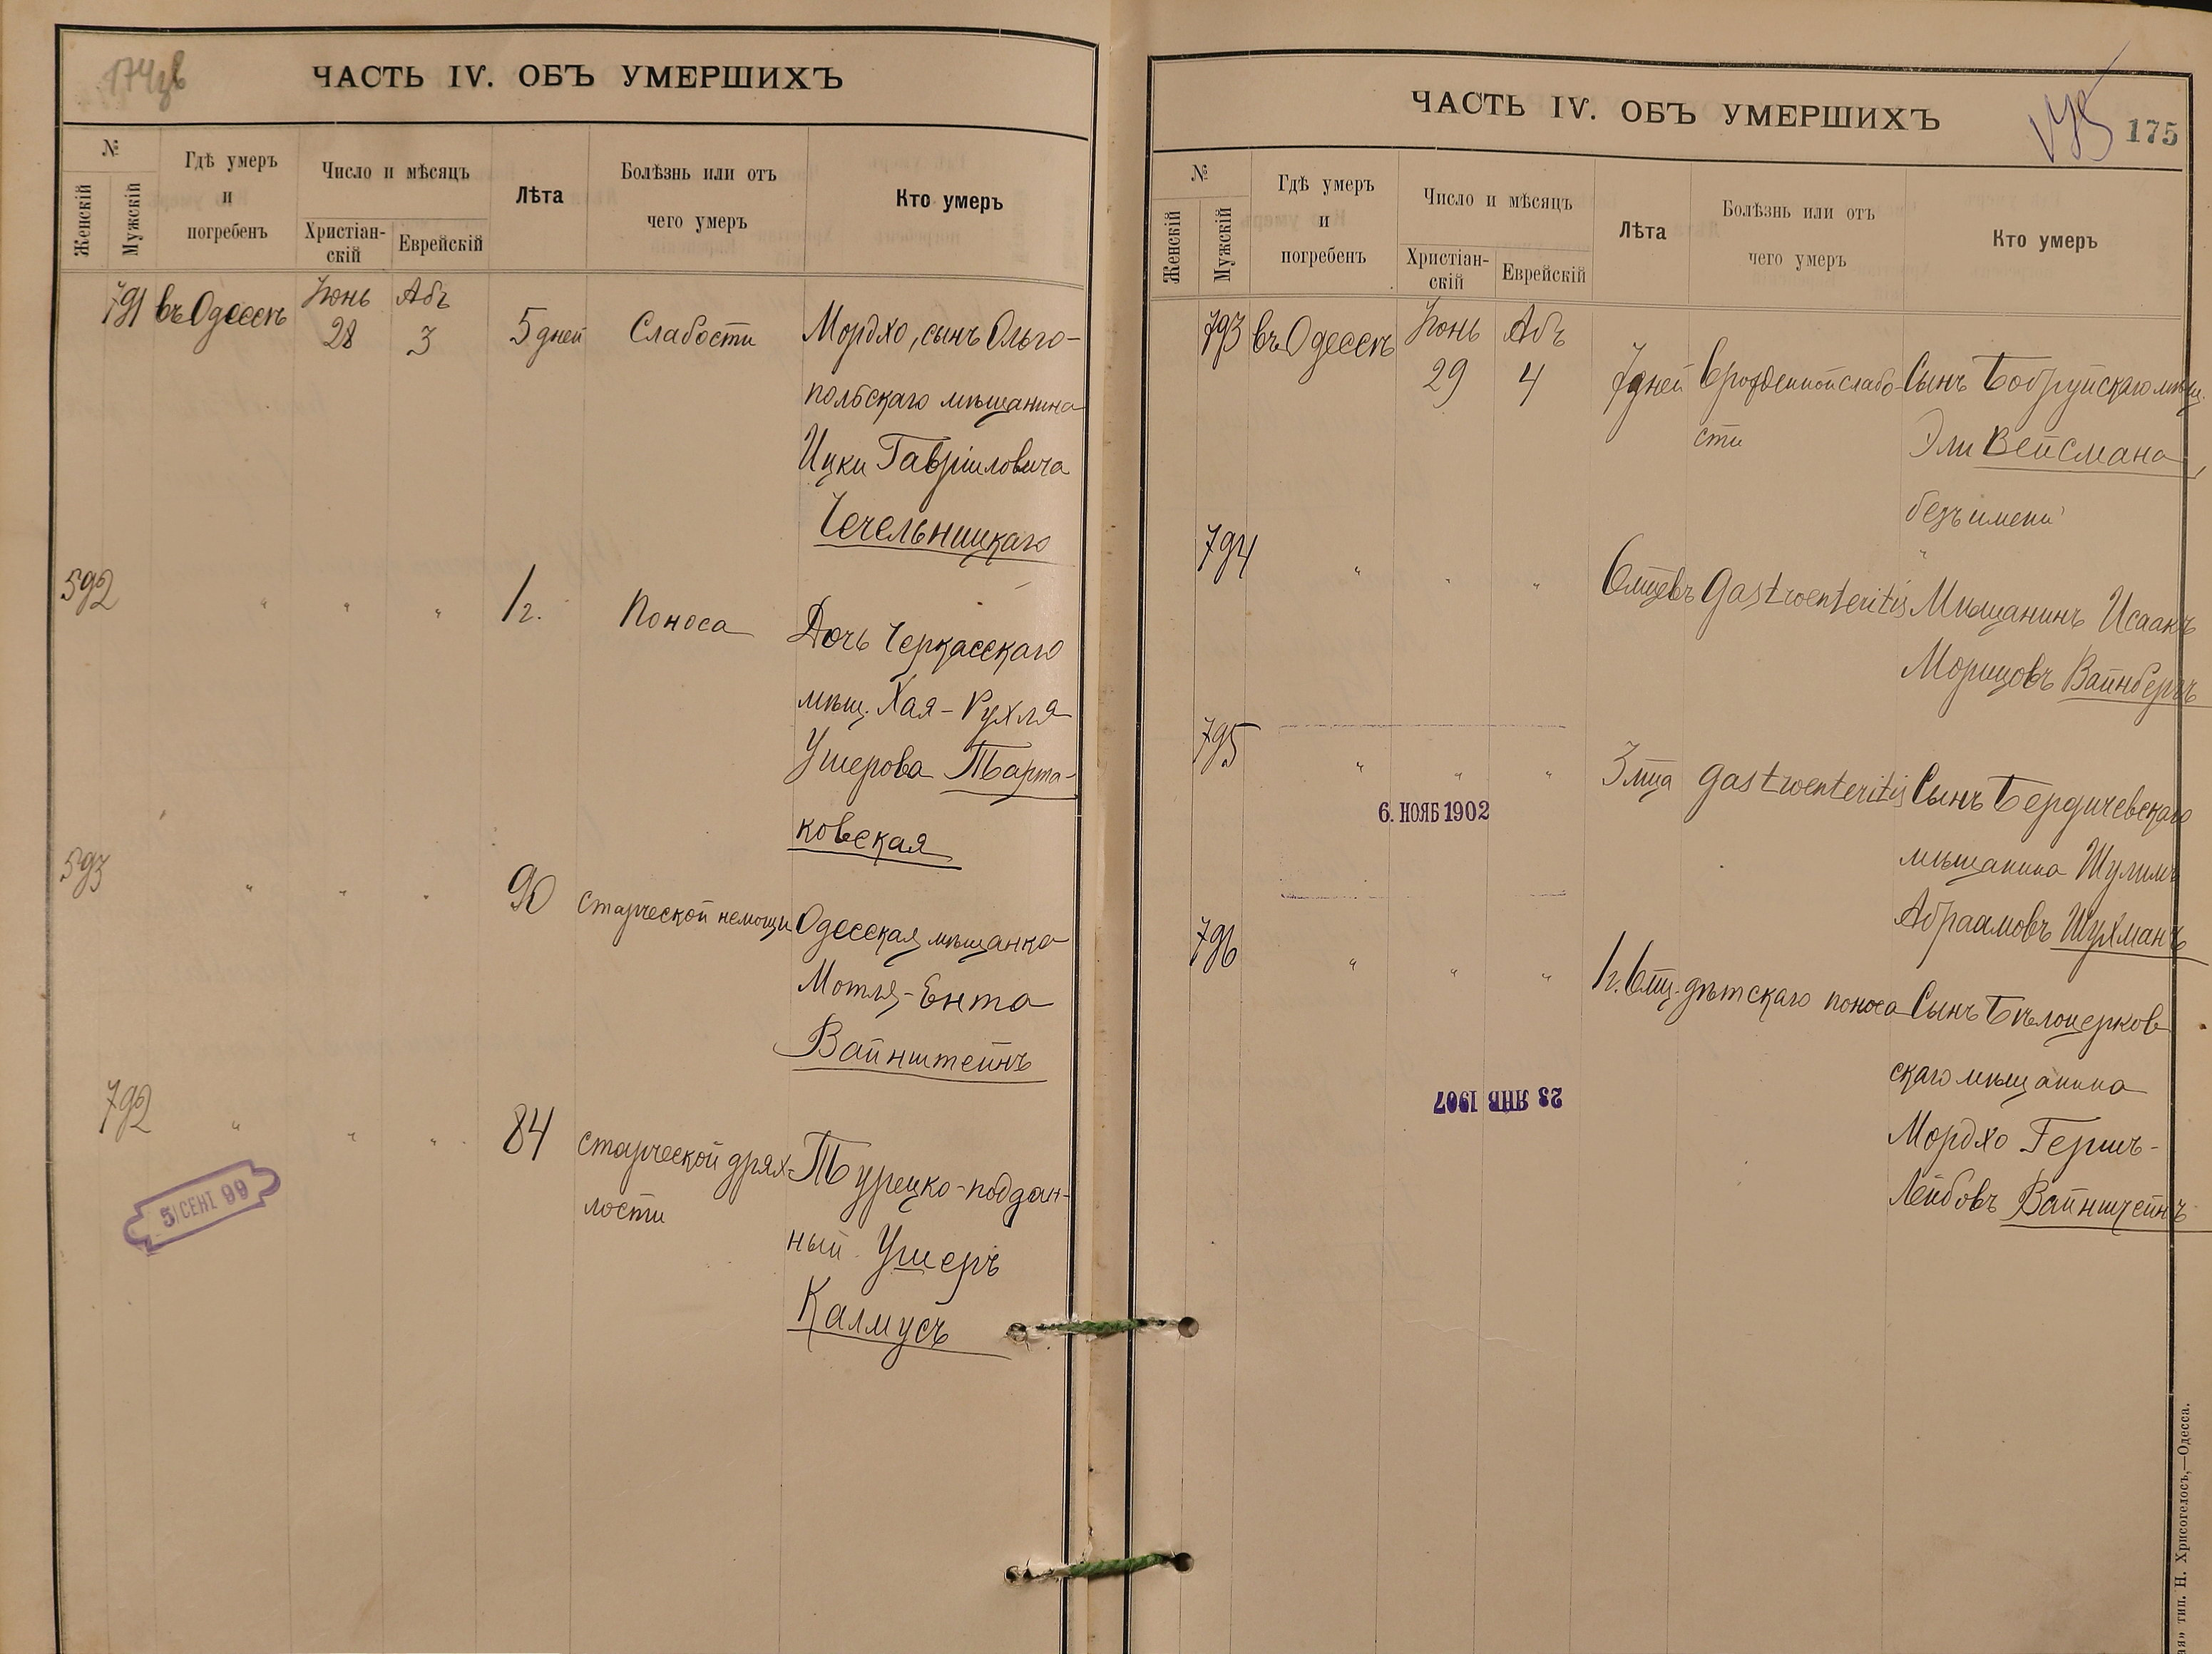 174 зв
ЧАСТЬ IV. ОБЪ УМЕРШИХЪ
№
Женскій
Мужскій
Гдѣ умеръ
и
погребенъ
Число и мѣсяцъ
Христіан-
скій
Еврейскій
Лѣта
Болѣзнь или отъ
чего умеръ
Кто умеръ
791 въ Одессѣ Іюнь 28 Абъ 3 5 дней Слабости Мордхо, сынъ Ольго-
польскаго мѣщанина
Ицки Гавріиловича
Чечельницкаго
592 " " " 1 г. Поноса Дочь Черкасскаго
мѣщ. Хая-Рухля
Ушерова Тарта-
ковская
593 " " " 90 старческой немощи Одесская мѣщанка
Мотля-Ента
Вайнштейнъ
792 " " " 84 старческой дрях- Турецко-поддан-
лости
ный Ушеръ
Калмусъ
5 СЕНТ 99
ЧАСТЬ IV. ОБЪ УМЕРШИХЪ
175
№
Женскій
Мужскій
Гдѣ умеръ
и
погребенъ
Число и мѣсяцъ
Христіан-
скій
Еврейскій
Лѣта
Болѣзнь или отъ
чего умеръ
Кто умеръ
793 въ Одессѣ Іюнь 29 Абъ 4 7 дней врожденной слабо- Сынъ Бобруйскаго мѣщ.
сти Эли Вейсмана,
безъ имени
794 " " " 6 мцевъ Gastroenteritis Мѣщанинъ Исаакъ
Морицовъ Вайнбергъ
795 " " " 3 мца gastroenteritis Сынъ Бердичевскаго
6. НОЯБ 1902
мѣщанина Шулимъ
Абраамовъ Шухманъ
796 " " " 1 г. 6 мц. дѣтскаго поноса Сынъ Бѣлоцерков
скаго мѣщанина
23 ЯНВ 1907
Мордхо Гершъ-
Лейбовъ Вайнштейнъ
тип. Н. Хрисогелосъ,—Одесса.